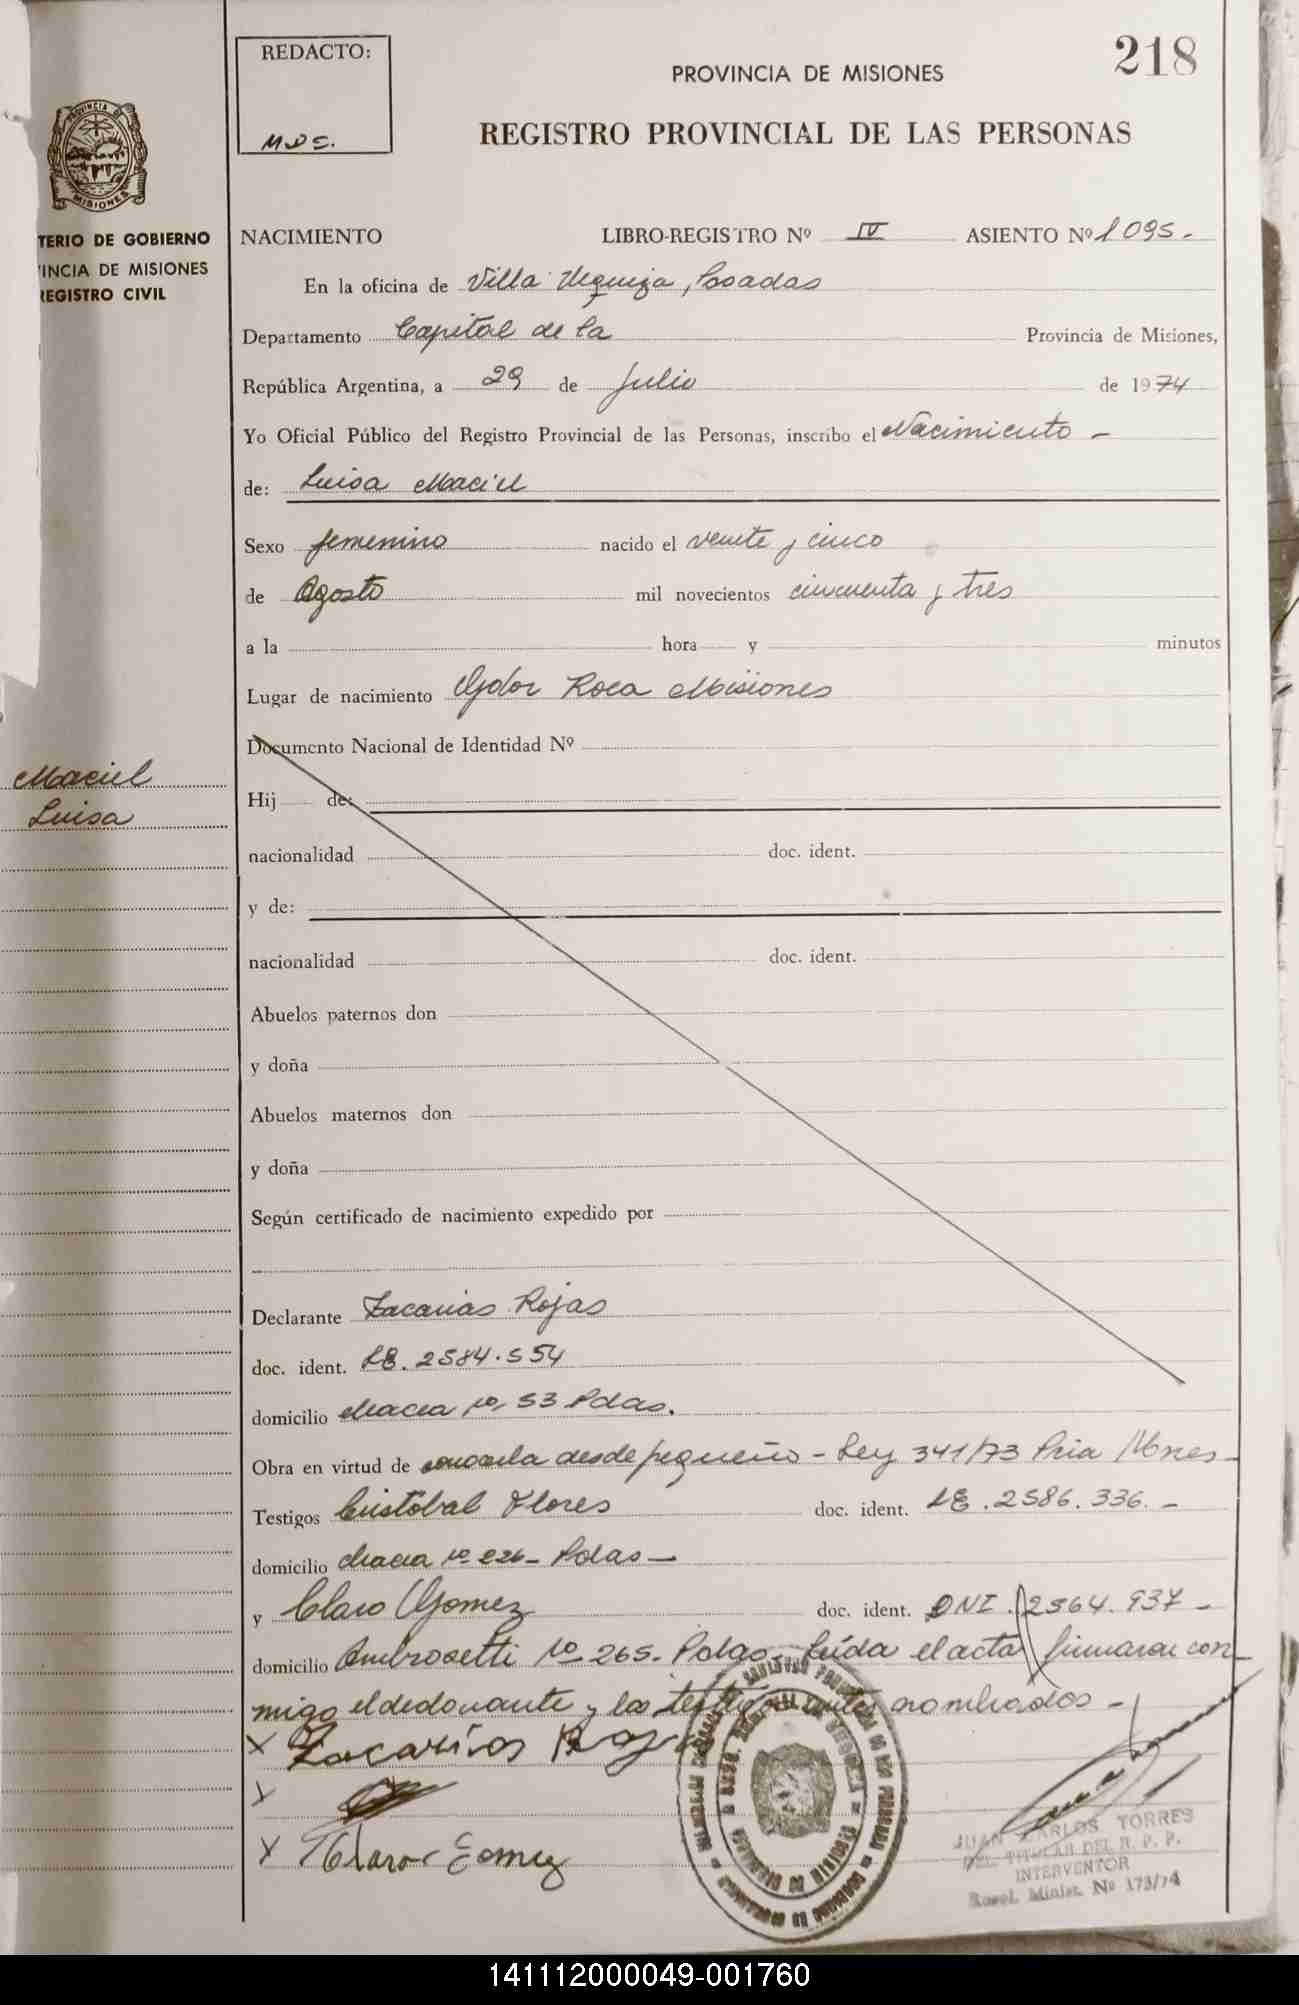 REDACTO:
M.D.S.
218
PROVINCIA DE MISIONES
REGISTRO PROVINCIAL DE LAS PERSONAS
PROVINCIA DE
MISIONES
TERIO DE GOBIERNO
INCIA DE MISIONES
REGISTRO CIVIL
NACIMIENTO LIBRO-REGISTRO Nº IV ASIENTO Nº 1095.-
En la oficina de Villa Urquiza, Posadas
Departamento Capital de la Provincia de Misiones,
República Argentina, a 29 de Julio de 1974
Yo Oficial Público del Registro Provincial de las Personas, inscribo el Nacimiento -
de: Luisa Maciel
Sexo femenino nacido el veinte y cinco
de Agosto mil novecientos cincuenta y tres
a la hora y minutos
Lugar de nacimiento Gdor Roca Misiones
Documento Nacional de Identidad Nº
Maciel
Luisa
Hij de:
nacionalidad doc. ident.
y de:
nacionalidad doc. ident.
Abuelos paternos don
y doña
Abuelos maternos don
y doña
Según certificado de nacimiento expedido por
Declarante Zacarias Rojas
doc. ident. LE. 2584.554
domicilio chacra Nº 53 Pdas.
Obra en virtud de conocerla desde pequeño - Ley 341/73 Pcia Mnes-
Testigos Cristobal Flores doc. ident. LE.2586.336.-
domicilio chacra Nº 226- Pdas-
y Claro Gomez doc. ident. DNI. 2564.937-
domicilio Ambrosetti Nº 265- Pdas- Leída el acta firmaron con-
migo el declarante y los testigos antes nombrados -
X Zacarias Roj
X
X Claro Gomez
JUAN CARLOS TORRES
DEL TITULAR DEL R. P. P.
INTERVENTOR
Resol. Minist. Nº 173/74
141112000049-001760